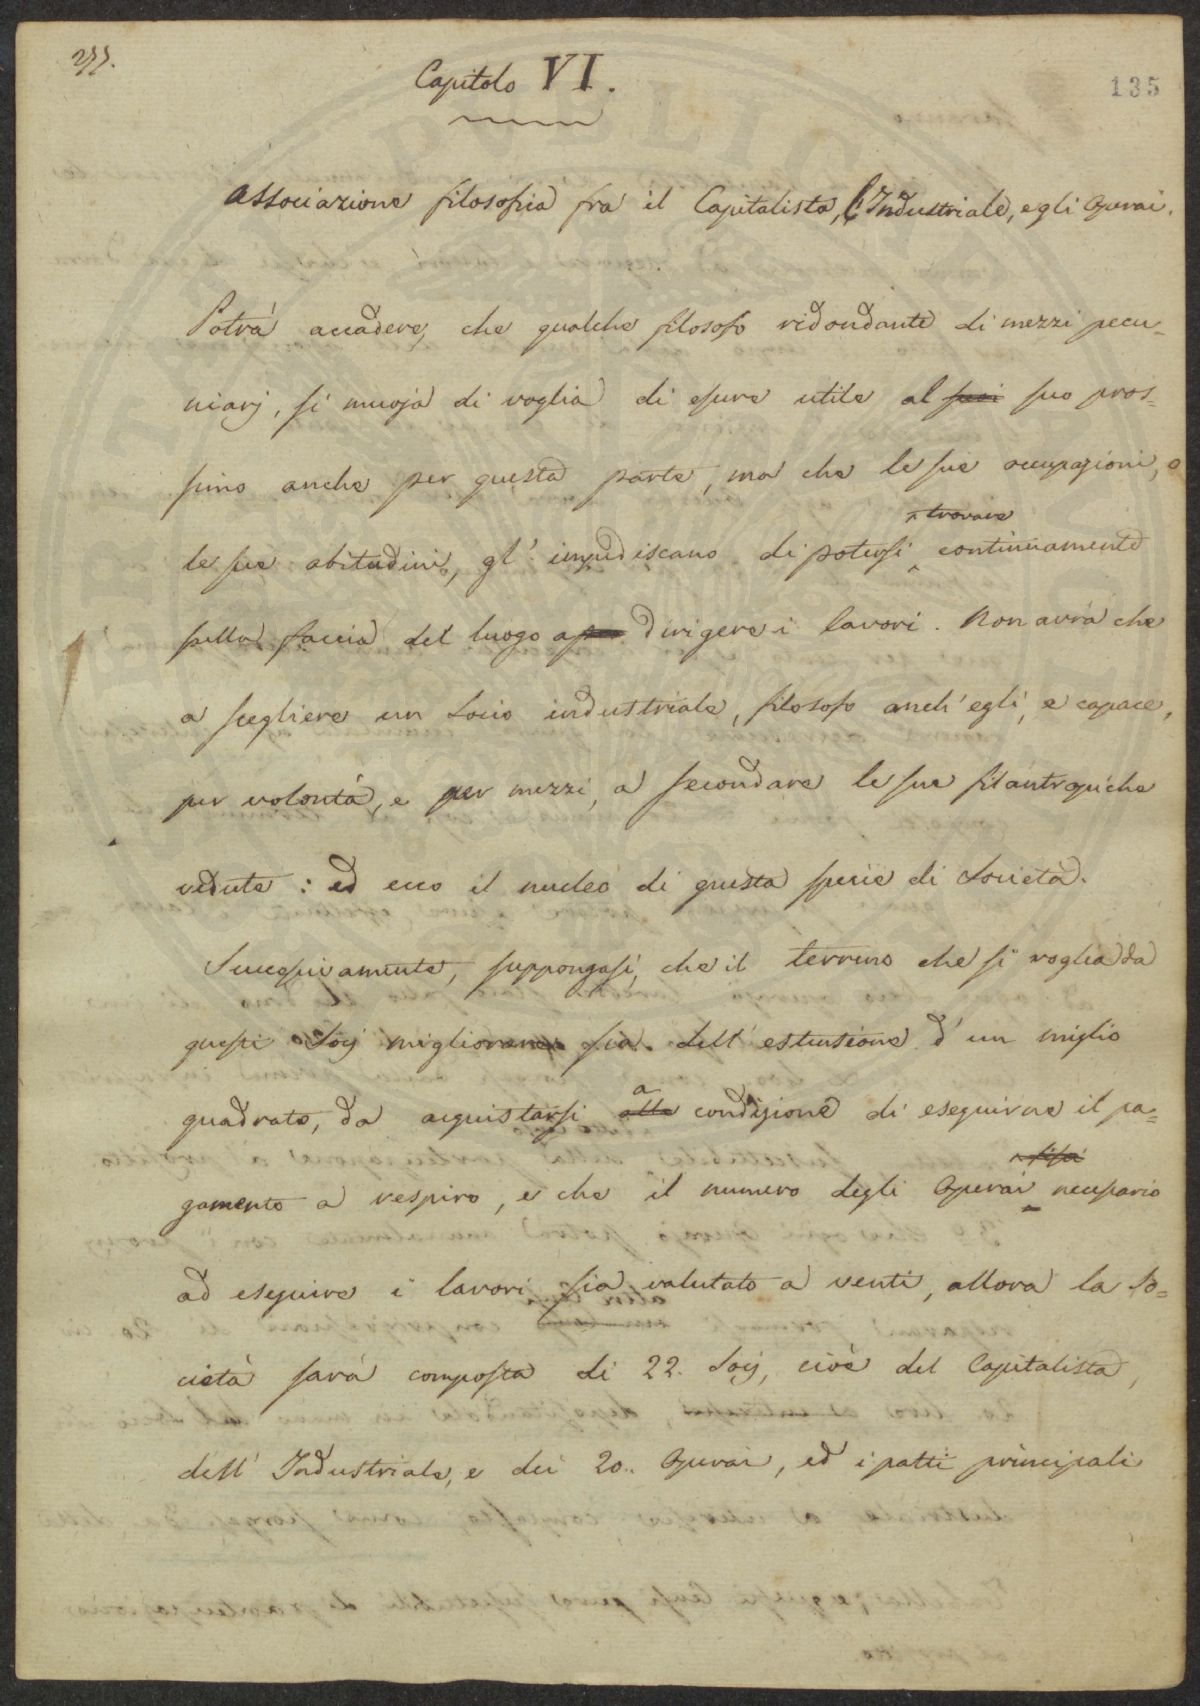 277.
135
Capitolo VI.
Associazione filosofica fra il Capitalista, l'Industriale, e gli Operai.
Potrà accadere, che qualche filosofo ridondante di mezzi pecu-
niarj, si muoja di voglia di essere utile al suoi suo pros-
simo anche per questa parte, ma che le sue occupazioni, o
trovare
le sue abitudini, gl' impediscano di potersi continuamente
sulla faccia del luogo a dirigere i lavori. Non avrà che
a scegliere un Socio industriale, filosofo anch' egli, e capace,
per volontà, e per mezzi, a secondare le sue filantropiche
vedute : ed ecco il nucleo di questa specie di Società.
Successivamente, suppongasi, che il terreno che si voglia da
questi Socj migliorare sia dell' estensione d' un miglio
a
quadrato, da acquistarsi alla condizione di eseguirne il pa-
gamento a respiro, e che il numero degli Operai necessario
ad eseguire i lavori sia valutato a venti, allora la So-
cietà sarà composta di 22. Socj, cioè del Capitalista,
dell' Industriale, e dei 20. Operai, ed i patti principali